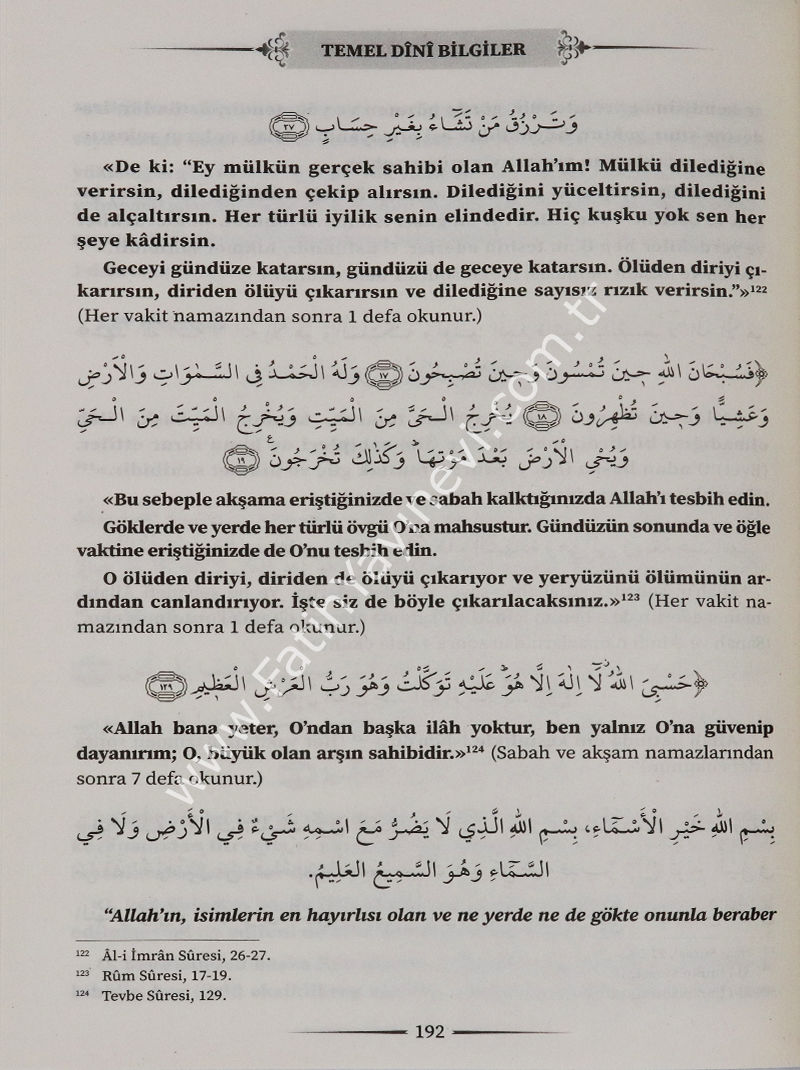 TEMEL DÎNÎ BİLGİLER
وَتَرْزُقُ مَنْ تَشَٓاءُ بِغَيْرِ حِسَابٍ ﴿٢٧﴾
«De ki: “Ey mülkün gerçek sahibi olan Allah’ım! Mülkü dilediğine
verirsin, dilediğinden çekip alırsın. Dilediğini yüceltirsin, dilediğini
de alçaltırsın. Her türlü iyilik senin elindedir. Hiç kuşku yok sen her
şeye kâdirsin.
Geceyi gündüze katarsın, gündüzü de geceye katarsın. Ölüden diriyi çı-
karırsın, diriden ölüyü çıkarırsın ve dilediğine sayısız rızık verirsin.”»¹²²
(Her vakit namazından sonra 1 defa okunur.)
﴿فَسُبْحَانَ اللّٰهِ حِينَ تُمْسُونَ وَحِينَ تُصْبِحُونَ ﴿١٧﴾ وَلَهُ الْحَمْدُ فِي السَّمٰوَاتِ وَالْاَرْضِ
وَعَشِيًّا وَحِينَ تُظْهِرُونَ ﴿١٨﴾ يُخْرِجُ الْحَيَّ مِنَ الْمَيِّتِ وَيُخْرِجُ الْمَيِّتَ مِنَ الْحَيِّ
وَيُحْيِ الْاَرْضَ بَعْدَ مَوْتِهَاۜ وَكَذٰلِكَ تُخْرَجُونَ۟ ﴿١٩﴾
«Bu sebeple akşama eriştiğinizde ve sabah kalktığınızda Allah’ı tesbih edin.
Göklerde ve yerde her türlü övgü O’na mahsustur. Gündüzün sonunda ve öğle
vaktine eriştiğinizde de O’nu tesbih edin.
O ölüden diriyi, diriden de ölüyü çıkarıyor ve yeryüzünü ölümünün ar-
dından canlandırıyor. İşte siz de böyle çıkarılacaksınız.»¹²³ (Her vakit na-
mazından sonra 1 defa okunur.)
﴿حَسْبِيَ اللّٰهُۘ لَٓا اِلٰهَ اِلَّا هُوَۜ عَلَيْهِ تَوَكَّلْتُ وَهُوَ رَبُّ الْعَرْشِ الْعَظِيمِ ﴿١٢٩﴾
«Allah bana yeter, O’ndan başka ilâh yoktur, ben yalnız O’na güvenip
dayanırım; O, büyük olan arşın sahibidir.»¹²⁴ (Sabah ve akşam namazlarından
sonra 7 defa okunur.)
بِسْمِ اللّٰهِ خَيْرِ الْأَسْمَٓاءِ، بِسْمِ اللّٰهِ الَّذِي لَا يَضُرُّ مَعَ اسْمِهِ شَيْءٌ فِي الْأَرْضِ وَلَا فِي
السَّمَٓاءِ وَهُوَ السَّمِيعُ الْعَلِيمُ.
“Allah’ın, isimlerin en hayırlısı olan ve ne yerde ne de gökte onunla beraber
¹²² Âl-i İmrân Sûresi, 26-27.
¹²³ Rûm Sûresi, 17-19.
¹²⁴ Tevbe Sûresi, 129.
192
www.FatihYayinevi.com.tr